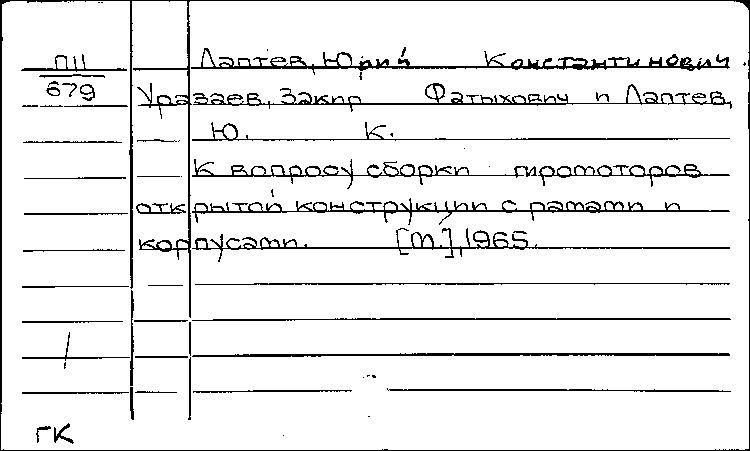 П11
679
Лаптев, Юрий Константинович.
Уразаев, Закир Фатыхович и Лаптев,
Ю. К.
К вопросу сборки гиромоторов
открытой конструкции с рамами и
корпусами. [М.], 1965.
ГК